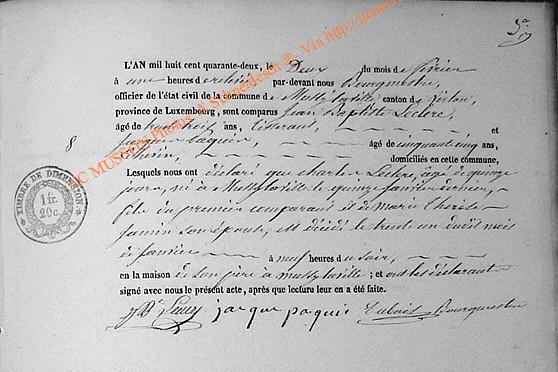 L'AN mil huit cent quarante-deux, le Deux du mois de février
à une heures de relevée par-devant nous Bourgmestre,
officier de l'état civil de la commune de Mussy la ville canton de Virton,
province de Luxembourg, sont comparus Jean Baptiste Leclere,
âgé de trente trois ans, Tisserand, et
Paquis, âgé de cinquante cinq ans,
domiciliés en cette commune,
Lesquels nous ont déclaré que Charles Leclere, âgé de quinze
jours, né à Mussy la ville le quinze janvier dernier,
fils du premier comparant et de Marie Therese
Jamin son épouse, est décédé le trente un dudit mois
de janvier à neuf heures du soir,
en la maison de son père à Mussy la ville; et ont les déclarants
signé avec nous le présent acte, après que lecture leur en a été faite.
jacque paquis Bourgmestre
8
TIMBRE DE DIMENSION
1 fr.
20c.
MUSSON Photos A. Schneidesch ©- Via http://